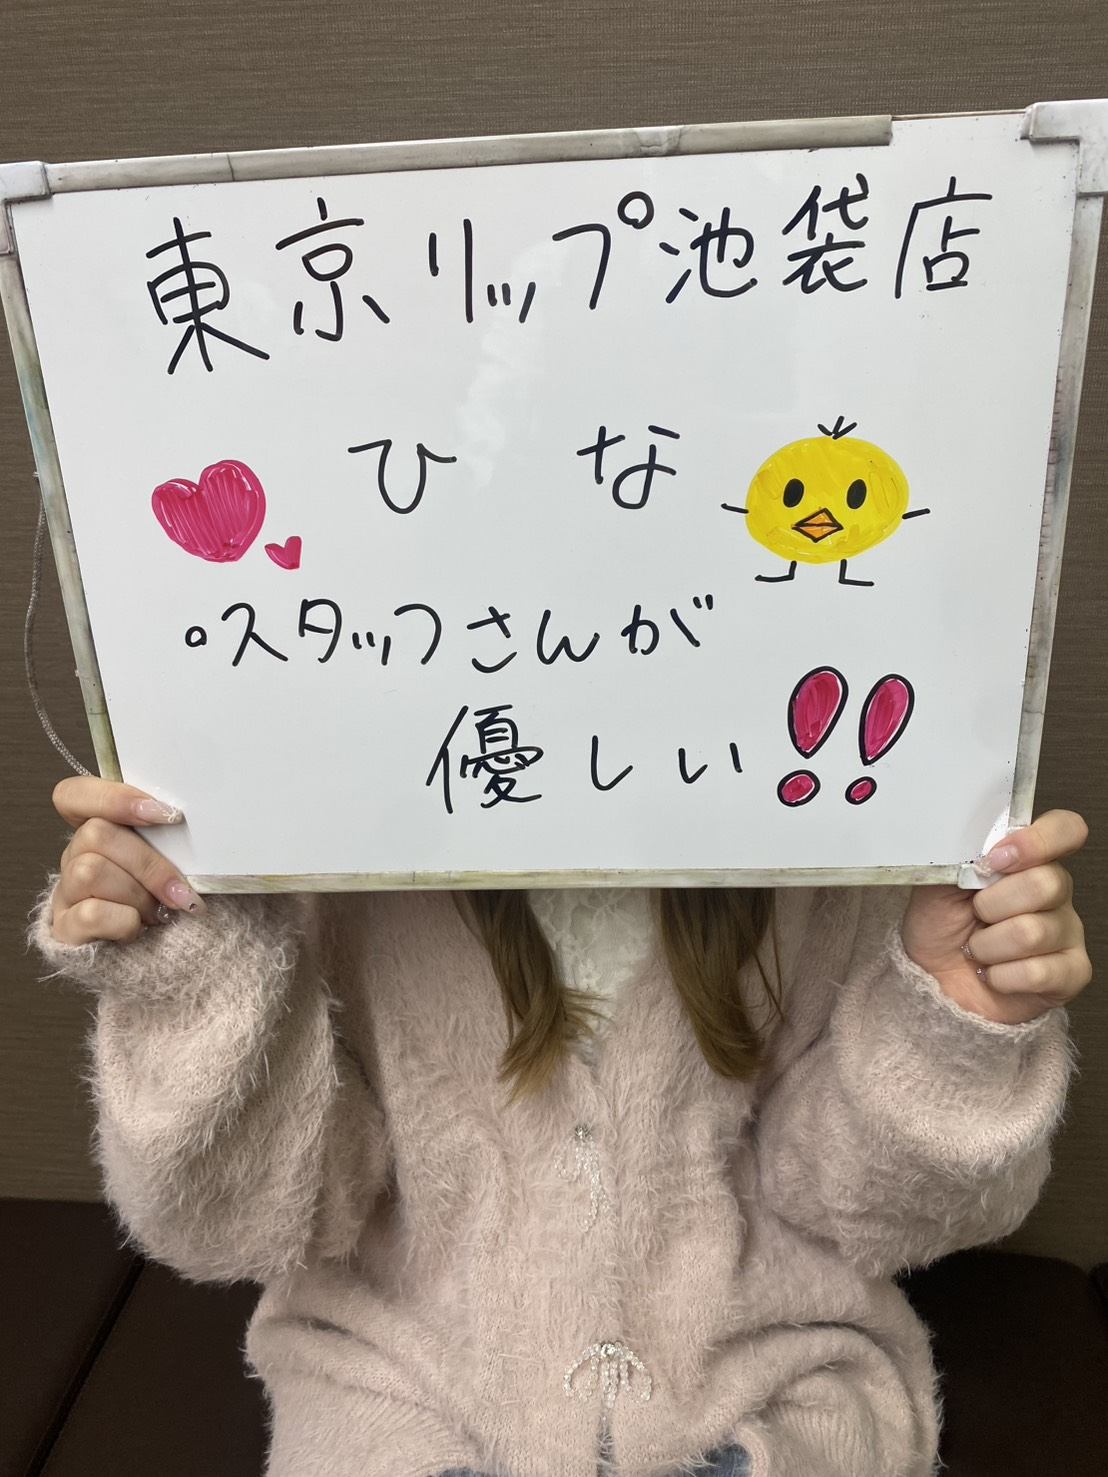 東京リップ池袋店
ひな
°スタッフさんが
優しい!!